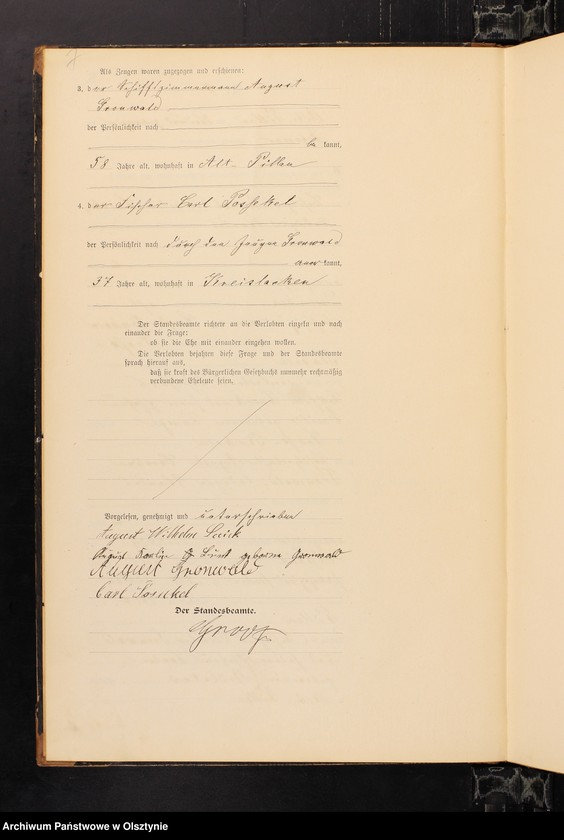 Als Zeugen waren zugezogen und erschienen:
3. der Schiffszimmermann August
Gronwald
der Persönlichkeit nach
be kannt,
58 Jahre alt, wohnhaft in Alt-Pillau
4. der Fischer Carl
der Persönlichkeit nach durch den Zeugen Gronwald
aner kannt,
37 Jahre alt, wohnhaft in
Der Standesbeamte richtete an die Verlobten einzeln und nach
einander die Frage:
ob sie die Ehe mit einander eingehen wollen.
Die Verlobten bejahten diese Frage und der Standesbeamte
sprach hierauf aus,
daß sie kraft des Bürgerlichen Gesetzbuchs nunmehr rechtmäßig
verbundene Eheleute seien.
Vorgelesen, genehmigt und unterschrieben
August Wilhelm
geborene Gronwald
August Gronwald
Carl
Der Standesbeamte.
Archiwum Państwowe w Olsztynie